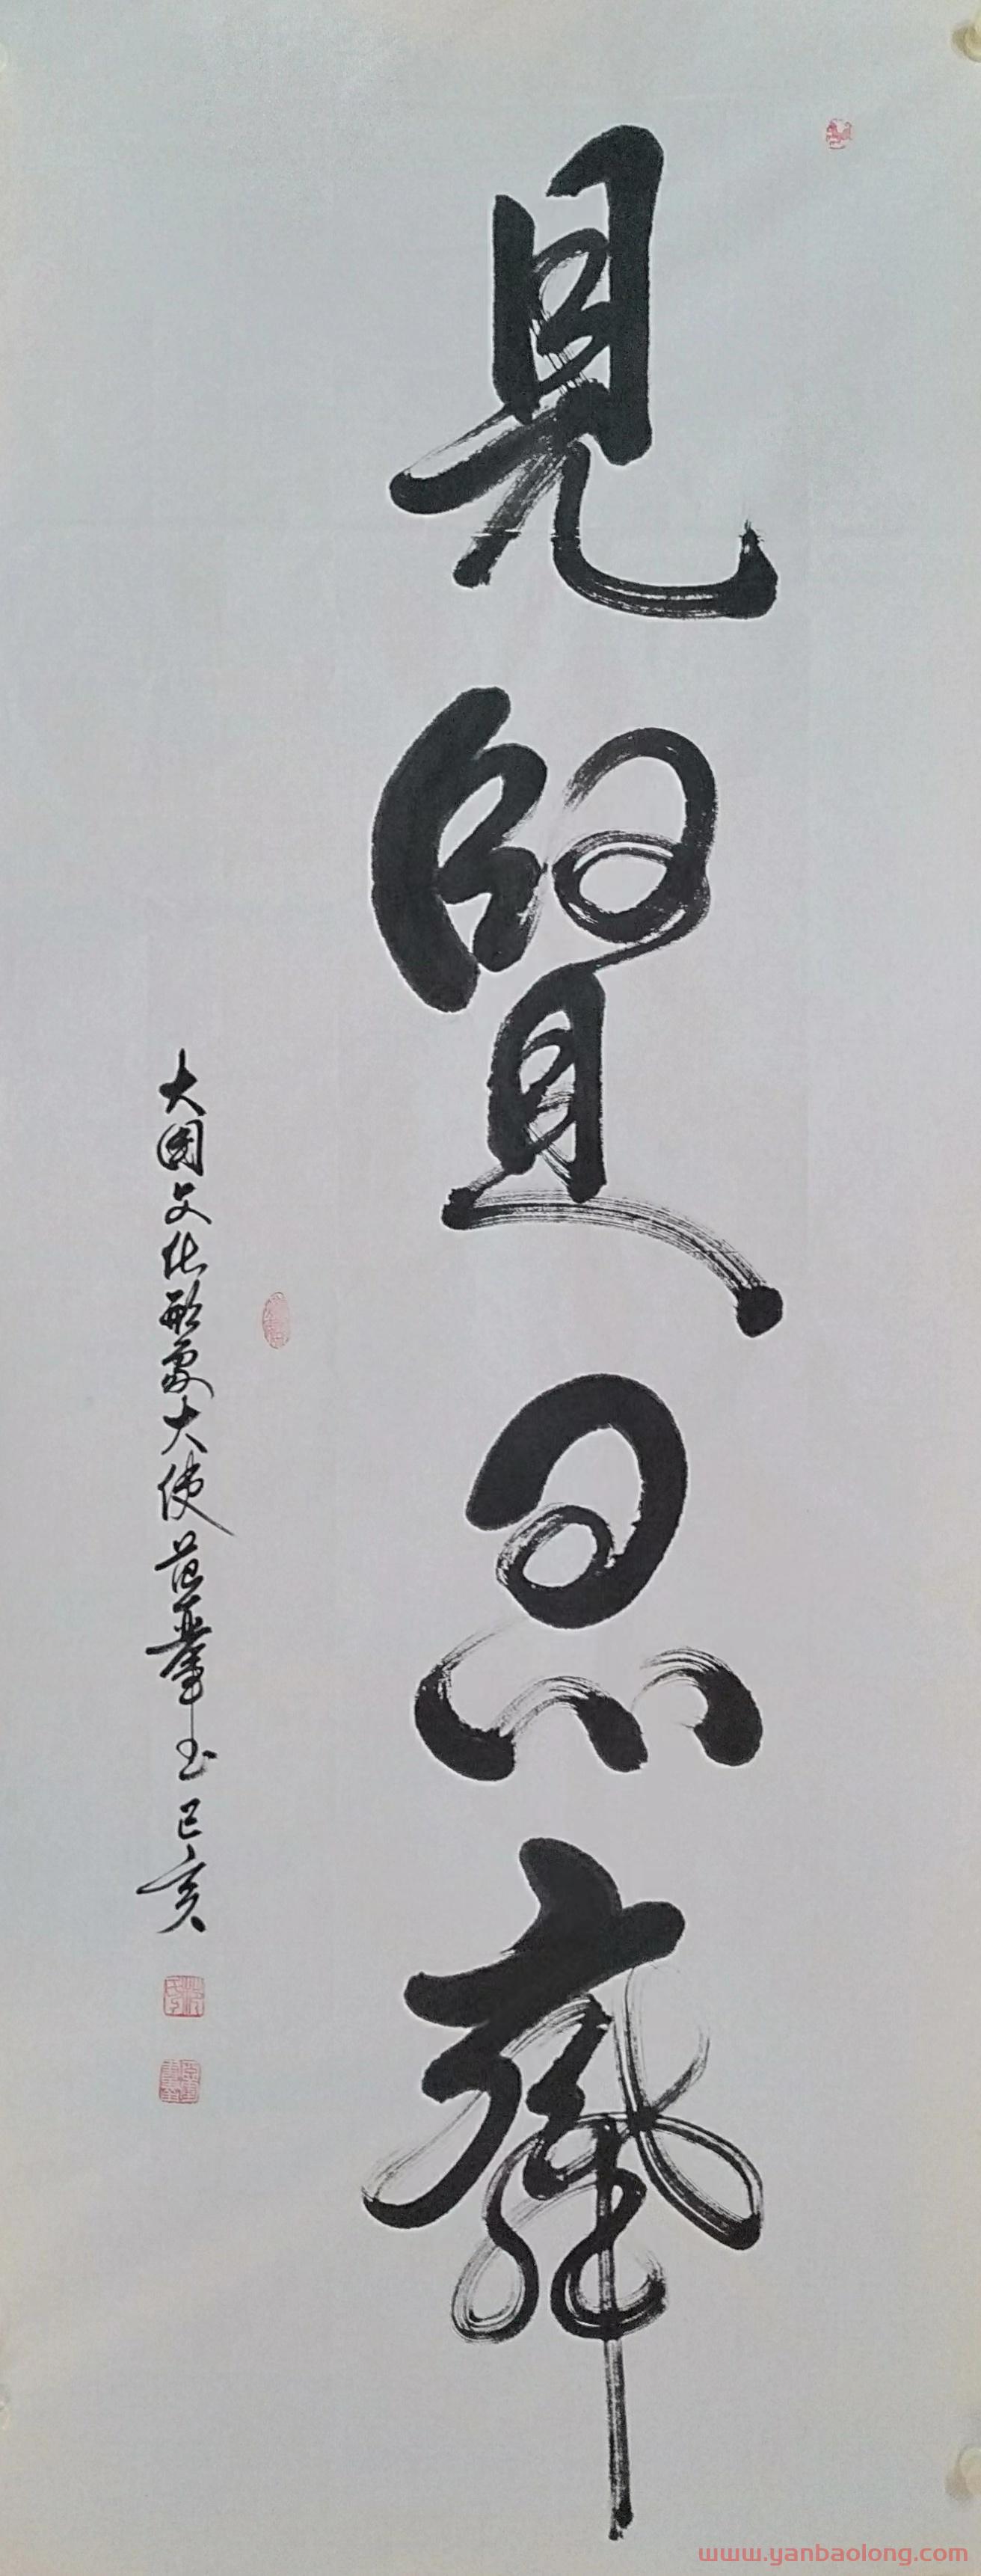 見賢思齊
大國文化形象大使范葦玉己亥
www.yanbaolong.com